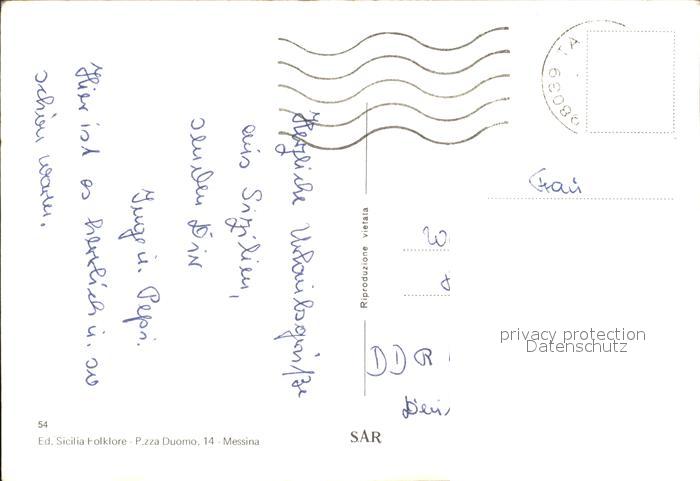 Herzliche Urlaubsgrüße
aus Sizilien,
senden Dir
Inge u. Pepi.
Hier ist es herrlich u. so
schön warm.
98039 TA
Frau
W
DDR
Riproduzione vietata
privacy protection
Datenschutz
54
Ed. Sicilia Folklore - P.zza Duomo, 14 - Messina
SAR